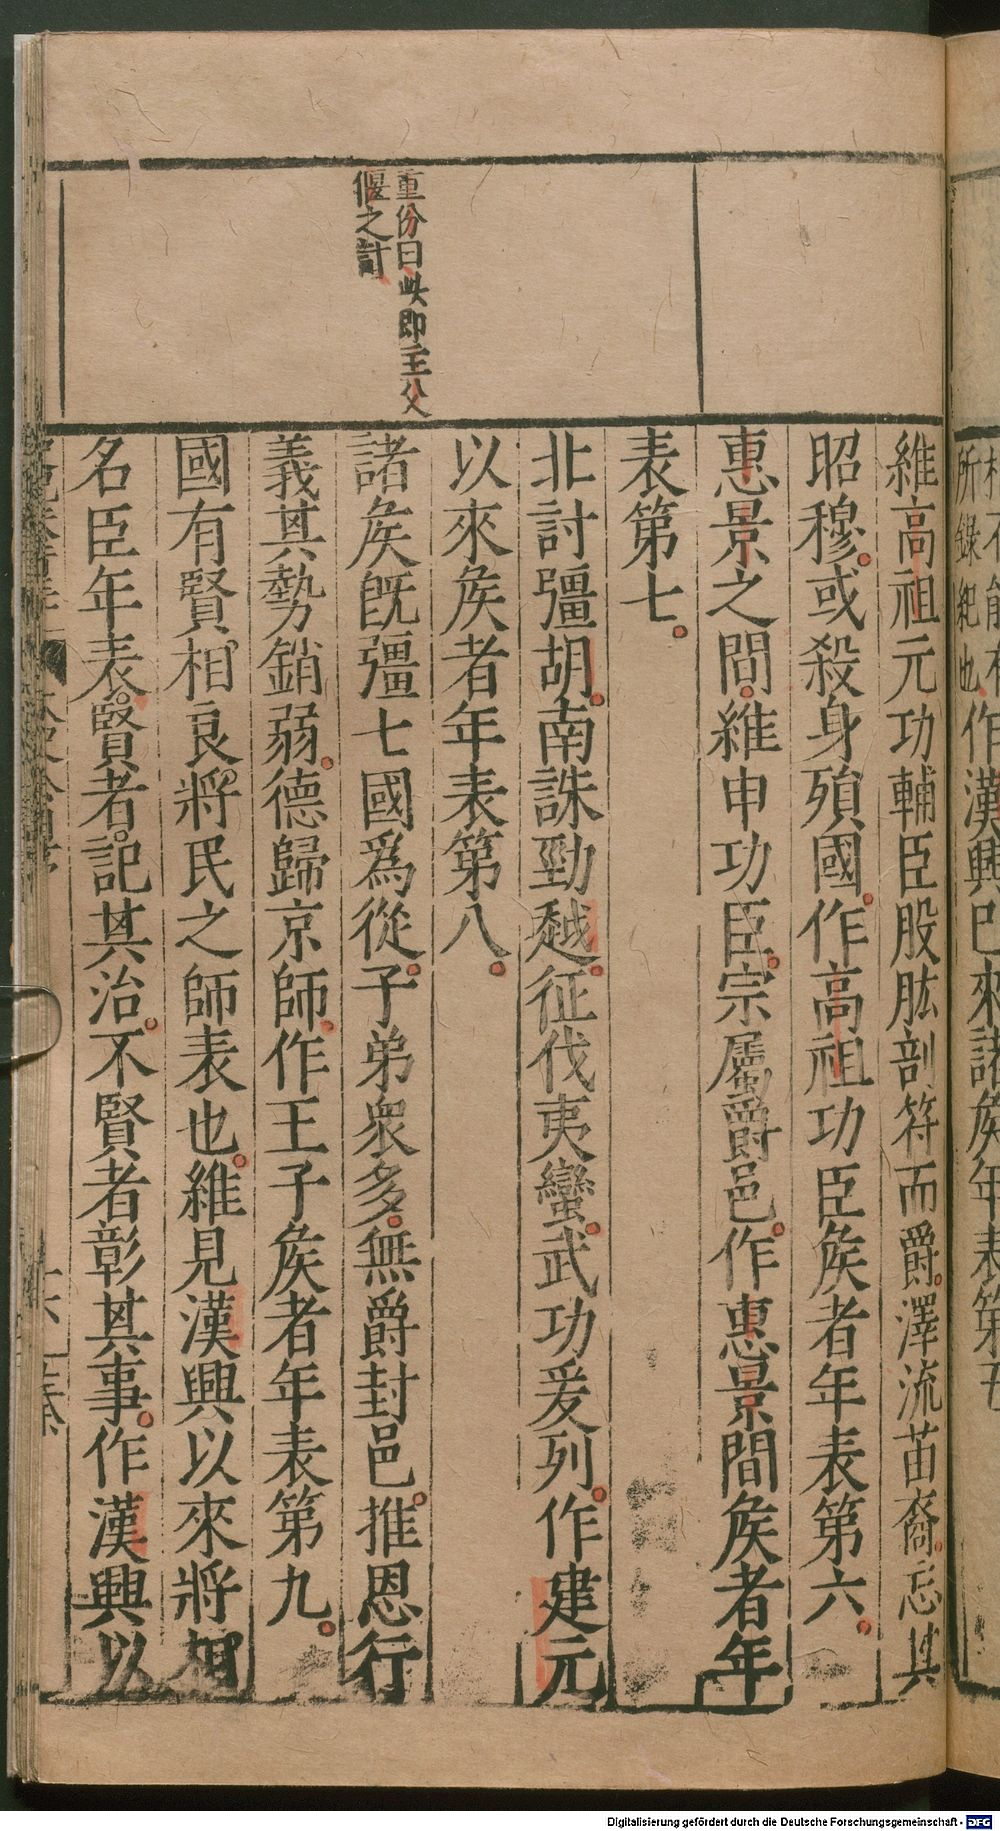 所錄紀也作漢興已來諸矦年表第五
維高祖元功輔臣股肱剖符而爵。澤流苗裔。忘其
昭穆。或殺身殞國。作高祖功臣矦者年表第六。
惠景之間。維申功臣。宗屬爵邑。作惠景間矦者年
表第七。
北討彊胡。南誅勁越。征伐夷蠻。武功爰列。作建元
以來矦者年表第八。
重份曰此即主父
偃之計
諸矦旣彊七國爲從。子弟衆多。無爵封邑。推恩行
義其勢銷弱。德歸京師。作王子矦者年表第九。
國有賢相良將民之師表也。維見漢興以來將相
名臣年表。賢者記其治。不賢者彰其事。作漢興以
Digitalisierung gefördert durch die Deutsche Forschungsgemeinschaft - DFG